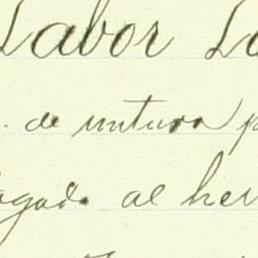 Labor La
. de untura p
agado al her